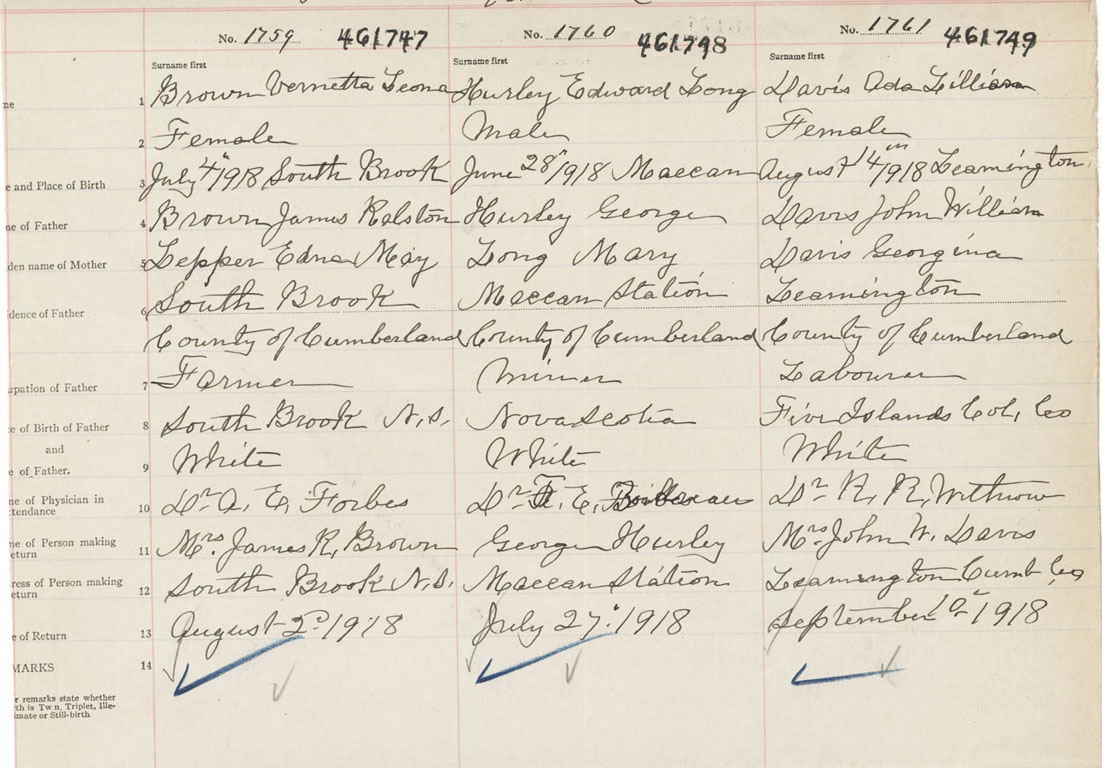 No. 1759 461747 No. 1760 461748 No. 1761 461749
Surname first Surname first Surname first
me 1 Brown Vernetta Leona Hurley Edward Long Davis Ada Lillian
2 Female Male Female
e and Place of Birth 3 July 4" 1918 South Brook June 28" 1918 Maccan August 14th 1918 Leamington
ne of Father 4 Brown James Ralston Hurley George Davis John William
den name of Mother 5 Lepper Edna May Long Mary Davis Georgina
idence of Father 6 South Brook Maccan Station Leamington
County of Cumberland County of Cumberland County of Cumberland
upation of Father 7 Farmer Miner Labourer
e of Birth of Father 8 South Brook N.S. Nova Scotia Five Islands Col. Co
and
e of Father. 9 White White White
ne of Physician in
ttendance 10 Dr A. E. Forbes Dr E. Dr R. R. Withrow
ne of Person making
eturn 11 Mrs. James R. Brown George Hurley Mrs John W. Davis
ress of Person making
eturn 12 South Brook N.S. Maccan Station Leamington Cumb Co
e of Return 13 August 2 1918 July 27 1918 September 1918
MARKS 14
r remarks state whether
th is Twin, Triplet, Ille-
imate or Still-birth